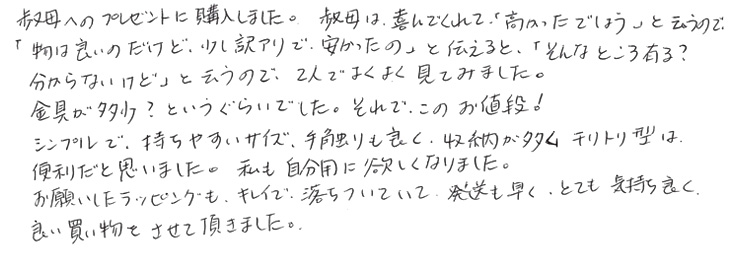 叔母へのプレゼントに購入しました。叔母は、喜んでくれて、「高かったでしょう」と云うので、
「物は良いのだけど、少し訳アリで、安かったの」と伝えると、「そんなところ有る?
分からないけど」と云うので、2人でよくよく見てみました。
金具が多少?というぐらいでした。それで、このお値段!
シンプルで、持ちやすいサイズ、手触りも良く、収納が多くチリトリ型は、
便利だと思いました。私も自分用に欲しくなりました。
お願いしたラッピングも、キレイで、落ちついていて、発送も早く、とても気持ち良く、
良い買い物をさせて頂きました。